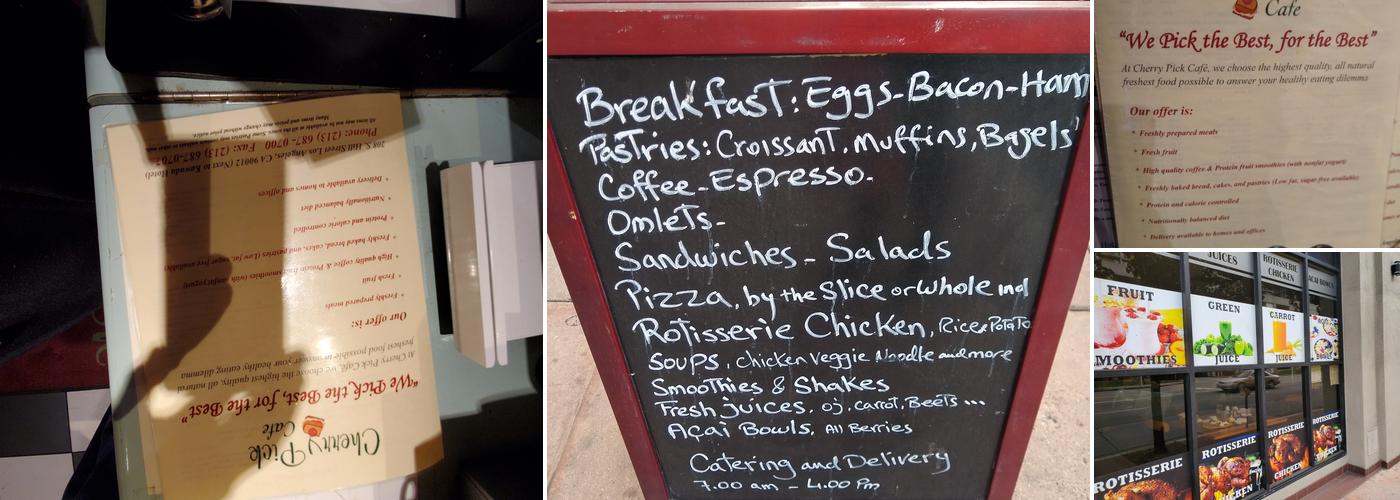 Cherry Pick
Cafe
"We Pick the Best, for the Best"
At Cherry Pick Café, we choose the highest quality, all natural
freshest food possible to answer your healthy eating dilemma
Our offer is:
* Freshly prepared meals
* Fresh fruit
* High quality coffee & Protein fruit smoothies (with nonfat yogurt)
* Freshly baked bread, cakes, and pastries (Low fat, sugar free available)
* Protein and calorie controlled
* Nutritionally balanced diet
* Delivery available to homes and offices
208 S. Hill Street Los Angeles, CA 90012 (Next to Kawada Hotel)
Phone: (213) 687-0700 Fax: (213) 687-0707
Many items and prices may change without prior notice.
Breakfast: Eggs-Bacon-Ham
Pastries: Croissant, Muffins, Bagels
Coffee-Espresso.
Omlets-
Sandwiches - Salads
Pizza, by the Slice or whole ind
Rotisserie Chicken, Rice & Potato
Soups, chicken veggie Noodle and more
Smoothies & Shakes
Fresh juices, oj, carrot, Beets ...
Açai Bowls, All Berries
Catering and Delivery
7.00 am - 4.00 Pm
Cafe
"We Pick the Best, for the Best"
At Cherry Pick Café, we choose the highest quality, all natural
freshest food possible to answer your healthy eating dilemma
Our offer is:
* Freshly prepared meals
* Fresh fruit
* High quality coffee & Protein fruit smoothies (with nonfat yogurt)
* Freshly baked bread, cakes, and pastries (Low fat, sugar free available)
* Protein and calorie controlled
* Nutritionally balanced diet
* Delivery available to homes and offices
JUICES
ROTISSERIE
CHICKEN
ACAI BOWLS
FRUIT
SMOOTHIES
GREEN
JUICE
CARROT
JUICE
BOWLS
ROTISSERIE
ROTISSERIE
CHICKEN
ROTISSERIE
CHICKEN
ROTISSERIE
CHICKEN